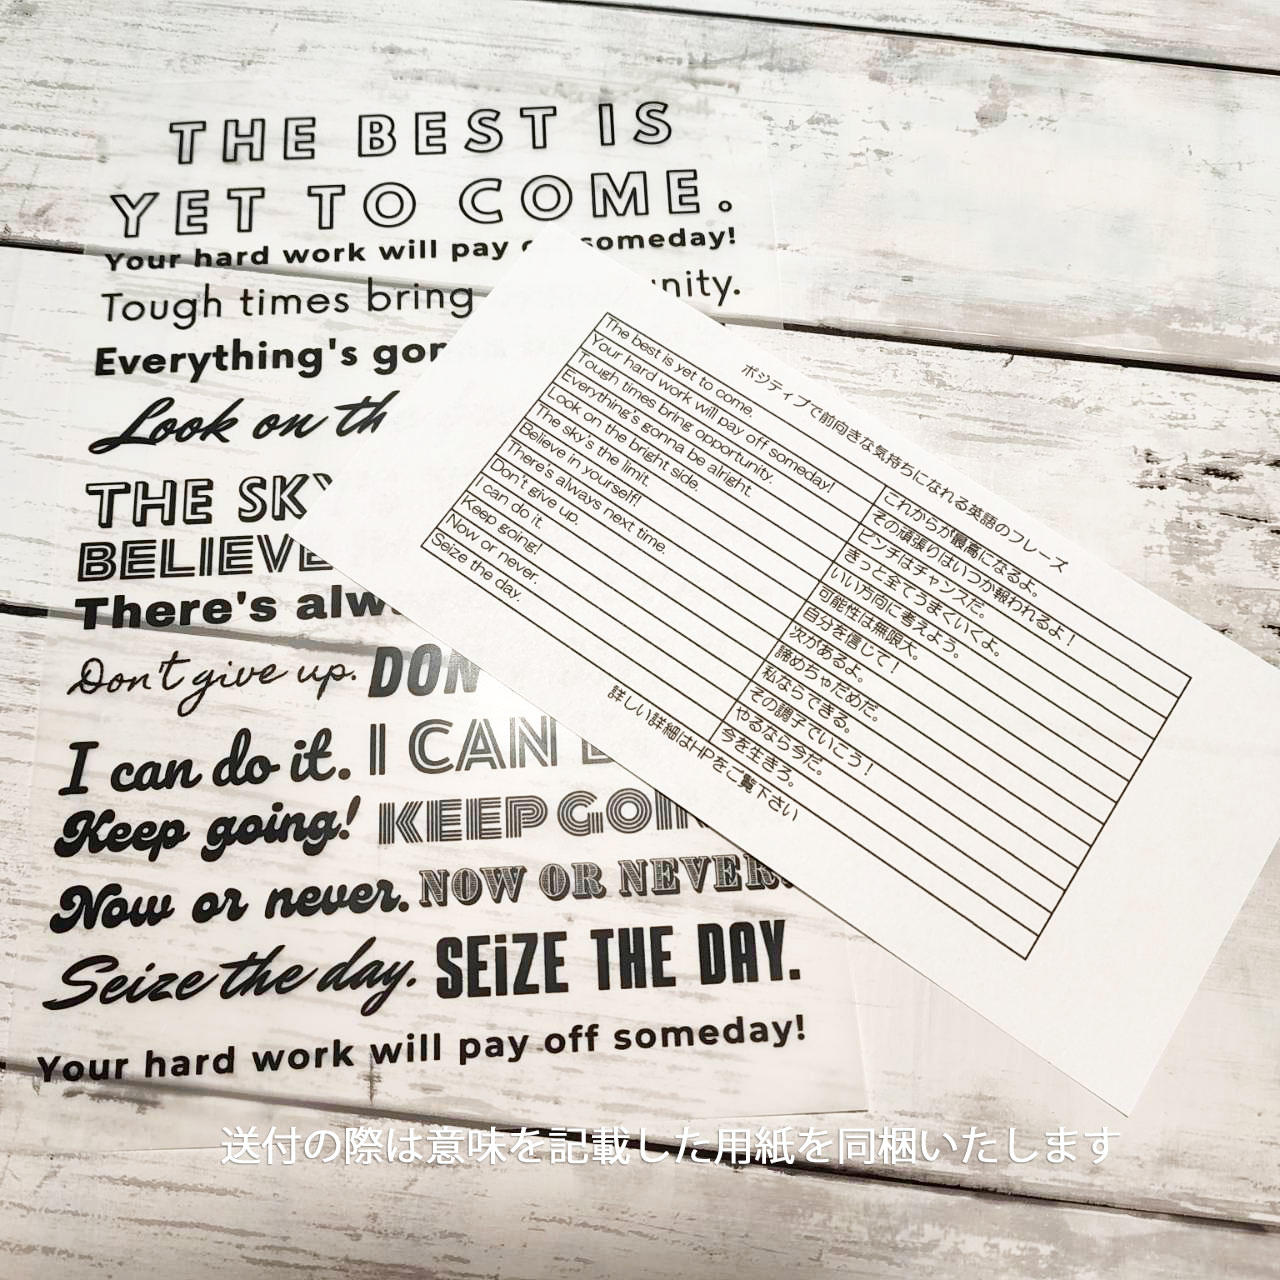 THE BEST IS
YET TO COME.
Your hard work will pay someday!
Tough times bring
Everything's
Look on
THE
BELIEVE
There's
Don't give up.
I can do it. I CAN
Keep going! KEEP
Now or never. NOW OR NEVER.
Seize the day. SEiZE THE DAY.
Your hard work will pay off someday!
ポジティブで前向きな気持ちになれる英語のフレーズ
The best is yet to come. これからが最高になるよ。
Your hard work will pay off someday! その頑張りはいつか報われるよ！
Tough times bring opportunity. ピンチはチャンスだ。
Everything's gonna be alright. きっと全てうまくいくよ。
Look on the bright side. いい方向に考えよう。
The sky's the limit. 可能性は無限大。
Believe in yourself! 自分を信じて！
There's always next time. 次があるよ。
Don't give up. 諦めちゃだめだ。
I can do it. 私ならできる。
Keep going! その調子でいこう！
Now or never. やるなら今だ。
Seize the day. 今を生きろ。
詳しい詳細はHPをご覧下さい
送付の際は意味を記載した用紙を同梱いたします